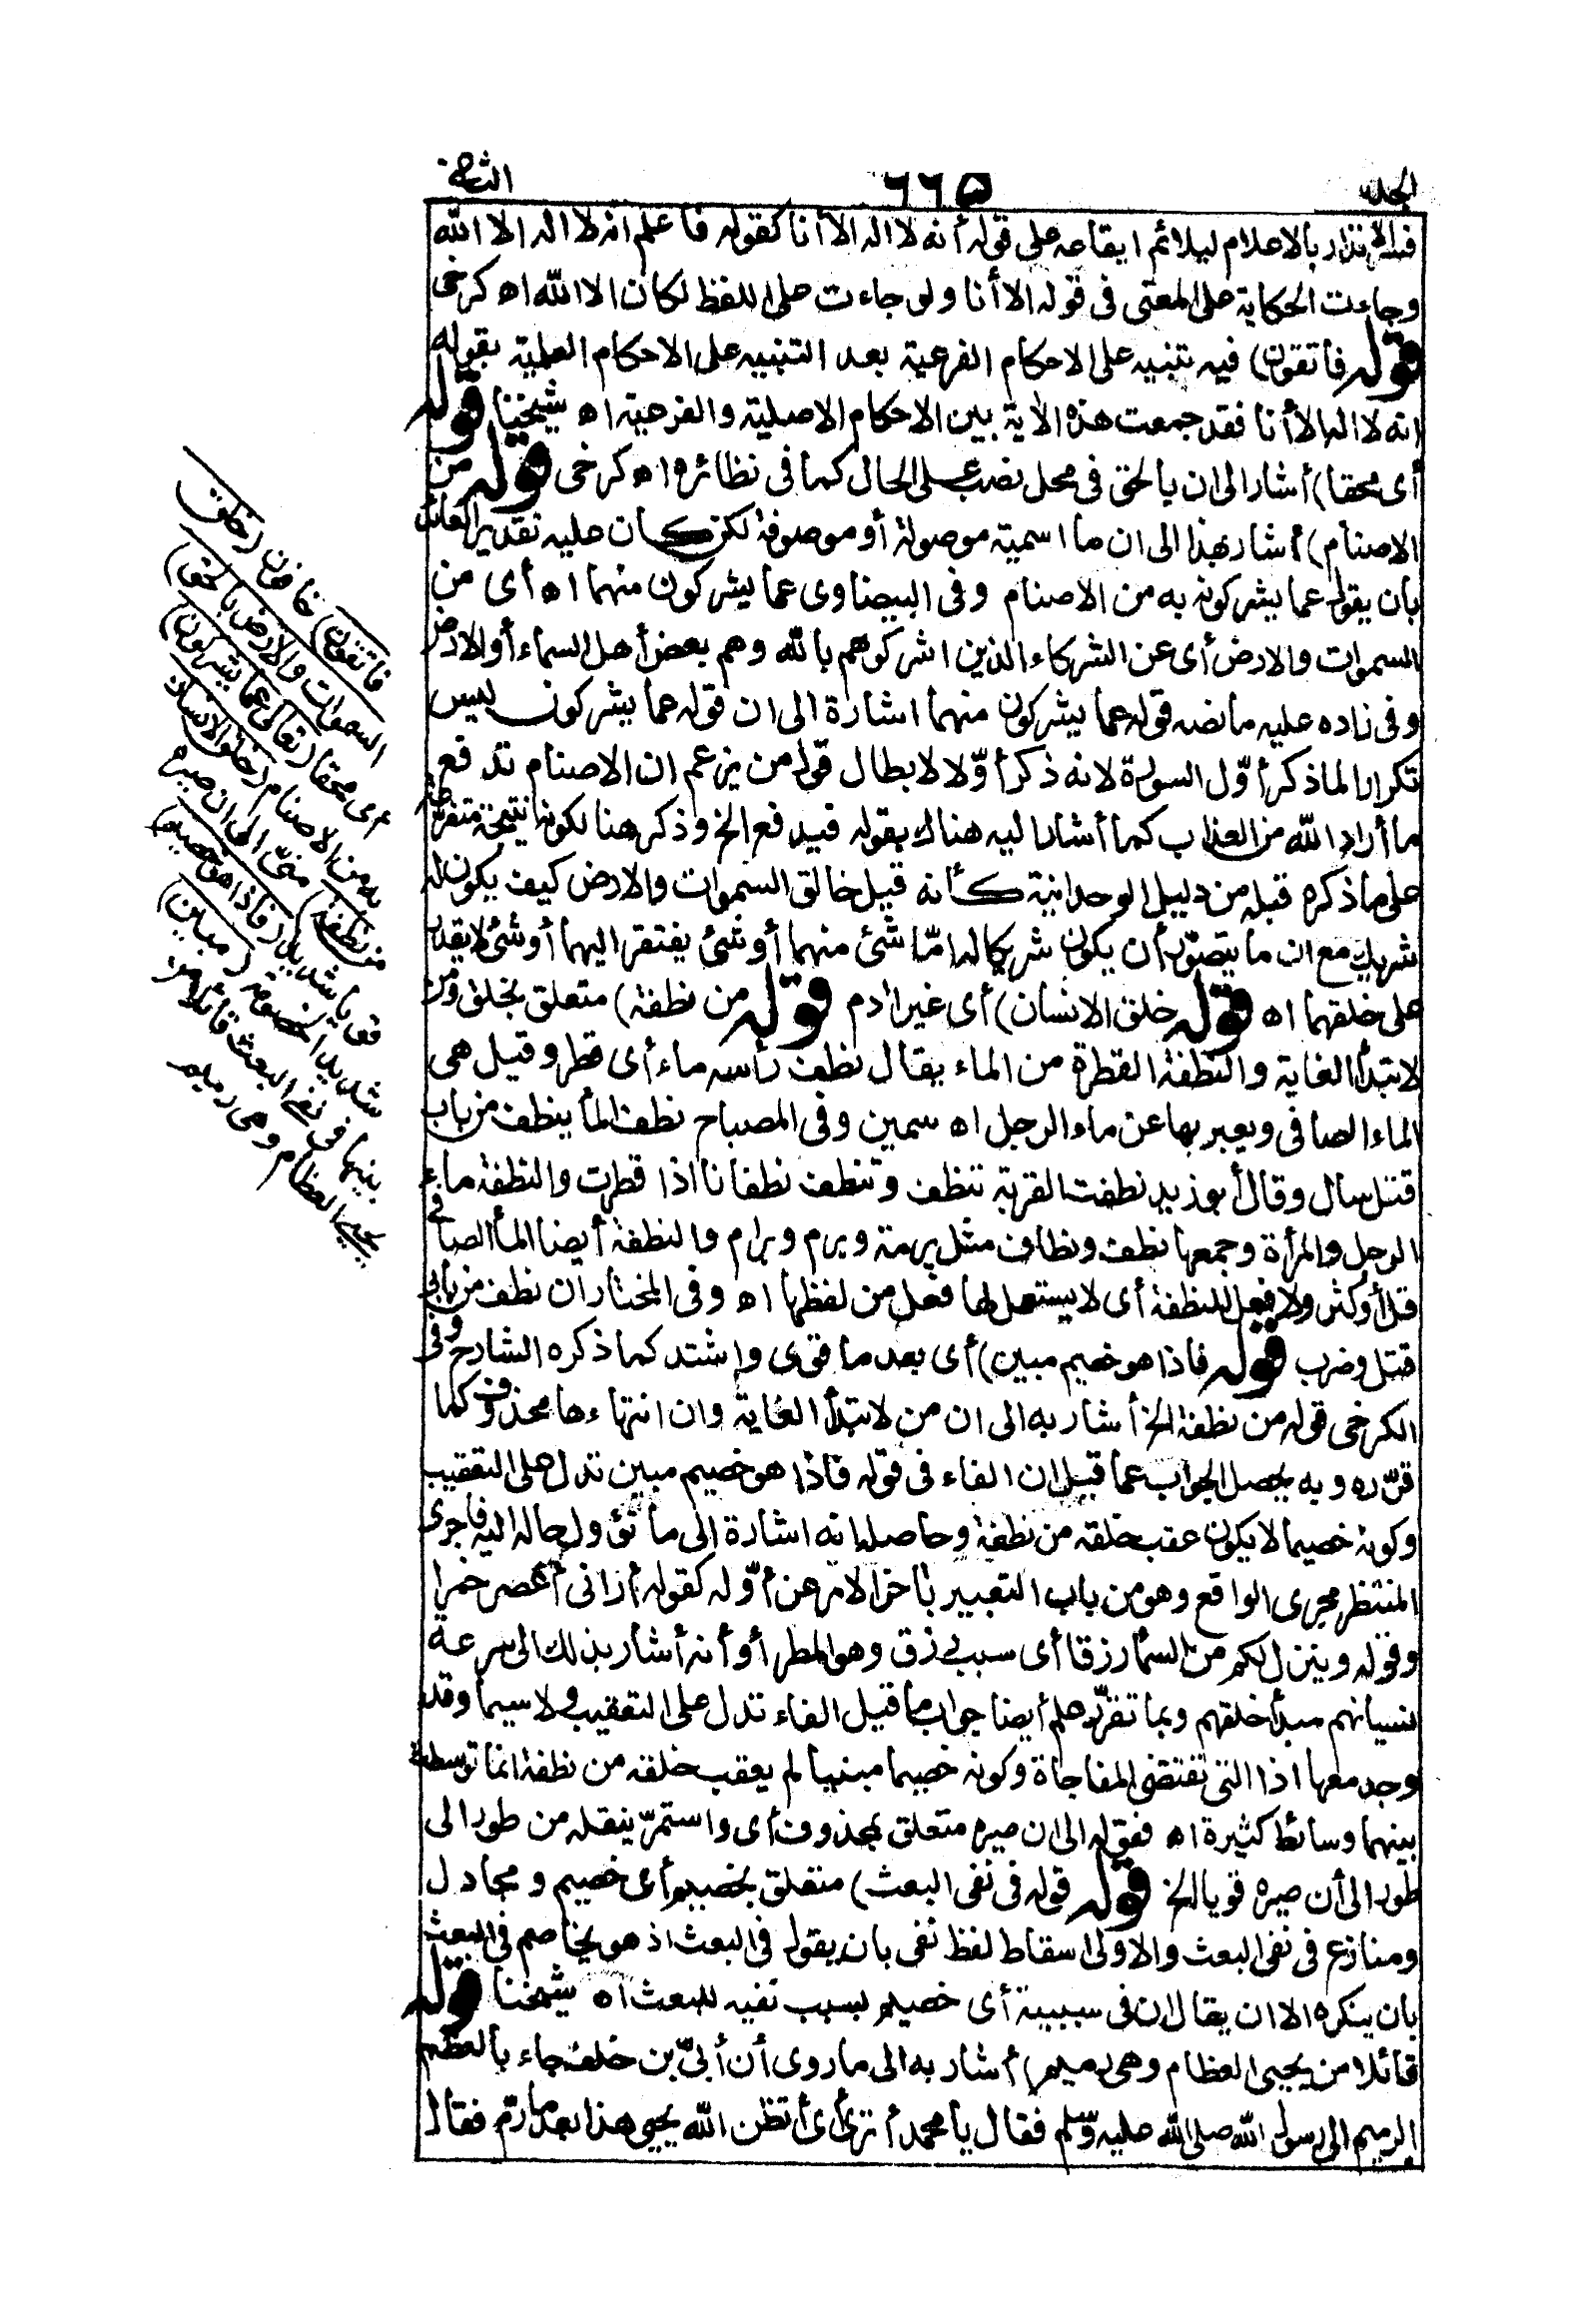 الجلد ٦٦٥ الثانى
فسر الانذار بالاعلام ليلائم ايقاعه على قوله أنه لا اله الا أنا كقوله فاعلم انه لا اله الا الله
وجاءت الحكاية على المعنى فى قوله الا أنا ولو جاءت على اللفظ لكان الا الله اه كرخى
قوله فاتقون) فيه تنبيه على الاحكام الفرعية بعد التنبيه على الاحكام العلمية بقوله
انه لا اله الا أنا فقد جمعت هذه الآية بين الاحكام الاصلية والفرعية اه شيخنا قوله
أى محقا) أشار الى ان بالحق فى محل نصب على الحال كما فى نظائره اه كرخى قوله من
الاصنام) أشار بهذا الى ان ما اسمية موصولة أو موصوفة لكن كان عليه تقدير العائد
بان يقول عما يشركونه به من الاصنام وفى البيضاوى عما يشركون منهما اه أى من
السموات والارض أى عن الشركاء الذين اشركوهم بالله وهم بعض أهل السماء أو الارض
وفى زاده عليه ما نصه قوله عما يشركون منهما اشارة الى ان قوله عما يشركون ليس
تكرارا لما ذكر أوّل السورة لانه ذكر أوّلا لابطال قول من يزعم ان الاصنام تدفع
ما أراد الله من العذاب كما أشار اليه هناك بقوله فيدفع الخ وذكر هنا لكونه نتيجة متفرعة
على ما ذكره قبله من دليل الوحدانية كأنه قيل خالق السموات والارض كيف يكون له
شريك مع ان ما يتصوّر أن يكون شريكا له امّا شئ منهما أو شئ يفتقر اليهما أو شئ لا يقدر
على خلقهما اه قوله خلق الانسان) أى غير ادم قوله من نطفة) متعلق بخلق ومن
لابتدأ الغاية والنطفة القطرة من الماء يقال نطف رأسه ماء أى قطر وقيل هى
الماء الصافى ويعبر بها عن ماء الرجل اه سمين وفى المصباح نطف المأ ينطف من باب
قتل سال وقال أبو زيد نطفت القربة تنطف وتنطف نطفانا اذا قطرت والنطفة ماء
الرجل والمرأة وجمعها نطف ونطاف مثل برمة وبرم وبرام والنطفة أيضا المأ الصافى
قل أو كثر ولا فعل للنطفة أى لا يستعمل لها فعل من لفظها اه وفى المختار ان نطف من بابى
قتل وضرب قوله فاذا هو خصيم مبين) أى بعد ما قوى واشتد كما ذكره الشارح وفى
الكرخى قوله من نطفة الخ أشار به الى ان من لابتدأ الغاية وان انتهاءها محذوف كما
قرّره وبه يحصل الجواب عما قيل ان الفاء فى قوله فاذا هو خصيم مبين تدل على التعقيب
وكونه خصيما لا يكون عقب خلقه من نطفة وحاصله انه اشارة الى ما تؤول حاله اليه فاجرى
المنتظر مجرى الواقع وهو من باب التعبير بآخر الامر عن أوّله كقوله أرانى أعصر خمرا
وقوله وينزل لكم من السمأ رزقا أى سبب رزق وهو المطر أو أنه أشار بذلك الى سرعة
نسيانهم مبدأ خلقهم وبما تقرّر علم أيضا جواب ما قيل الفاء تدل على التعقيب ولا سيما وقد
وجد معها اذا التى تقتضى المفاجاة وكونه خصيما مبنيا لم يعقب خلقه من نطفة انما توسطت
بينهما وسائط كثيرة اه فقوله الى ان صيره متعلق بمحذوف أى واستمرّ ينقله من طور الى
طور الى أن صيره قويا الخ قوله قوله فى نفى البعث) متعلق بخصيم أى خصيم ومجادل
ومنازع فى نفى البعث والاولى اسقاط لفظ نفى بان يقول فى البعث اذ هو يخاصم فى البعث
بان ينكره الا ان يقال ان فى سببية أى خصيم لسبب نفيه للبعث اه شيخنا قوله
قائلا من يحيى العظام وهى رميم) أشار به الى ما روى أن أبىّ بن خلف جاء بالعظم
الرميم الى رسول الله صلى الله عليه وسلم فقال يا محمد أترى أى أتظن الله يحيى هذا بعد ما رمّ فقال
فاتقون) خافون (خلق
السموات والارض بالحق)
أى محقا (تعالى عما يشركون)
به من الاصنام (خلق الانسان
من نطفة) منىّ الى ان صيره
قويا شديدا (فاذا هو خصيم)
شديد الخصومة (مبين)
بينها فى نفى البعث قائلا من
يحيى العظام وهى رميم